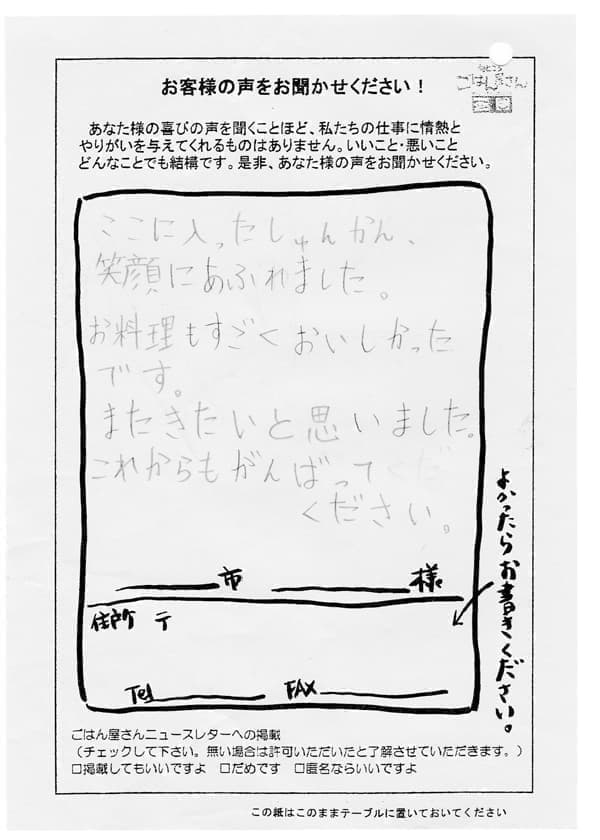 ごはん屋さん
お客様の声をお聞かせください！
あなた様の喜びの声を聞くことほど、私たちの仕事に情熱と
やりがいを与えてくれるものはありません。いいこと・悪いこと
どんなことでも結構です。是非、あなた様の声をお聞かせください。
ここに入ったしゅんかん、
笑顔にあふれました。
お料理もすごくおいしかった
です。
またきたいと思いました。
これからもがんばって
ください。
市 様
住所 〒
Tel FAX
よかったらお書きください。
ごはん屋さんニュースレターへの掲載
（チェックして下さい。無い場合は許可いただいたと了解させていただきます。）
□掲載してもいいですよ □だめです □匿名ならいいですよ
この紙はこのままテーブルに置いておいてください